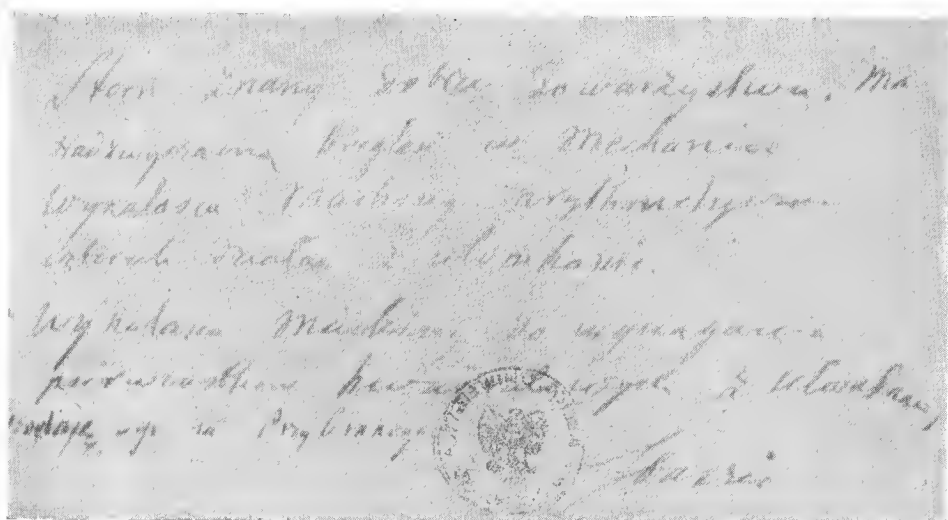 Stern znany dobrze Towarzystwu. Ma
nadzwyczajną biegłość w Mechanice
Wynalazca Machiny Arythmetycznej
czterech działań z ułamkami.
Wynalazca Machiny do wyciągania
pierwiastków kwadratowych z ułamkami
podaję się na Przybranego